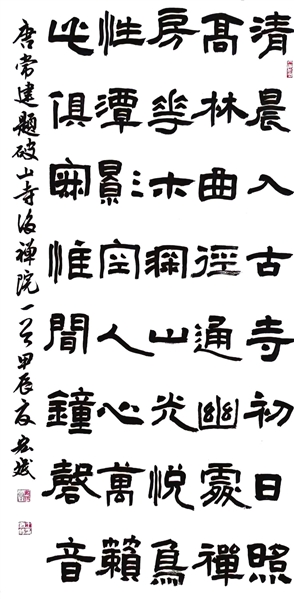 清晨入古寺初日照
高林曲徑通幽處禪
房花木深山光悅鳥
性潭影空人心萬籟
此俱寂惟聞鐘磬音
唐常建題破山寺後禪院一首甲辰夏